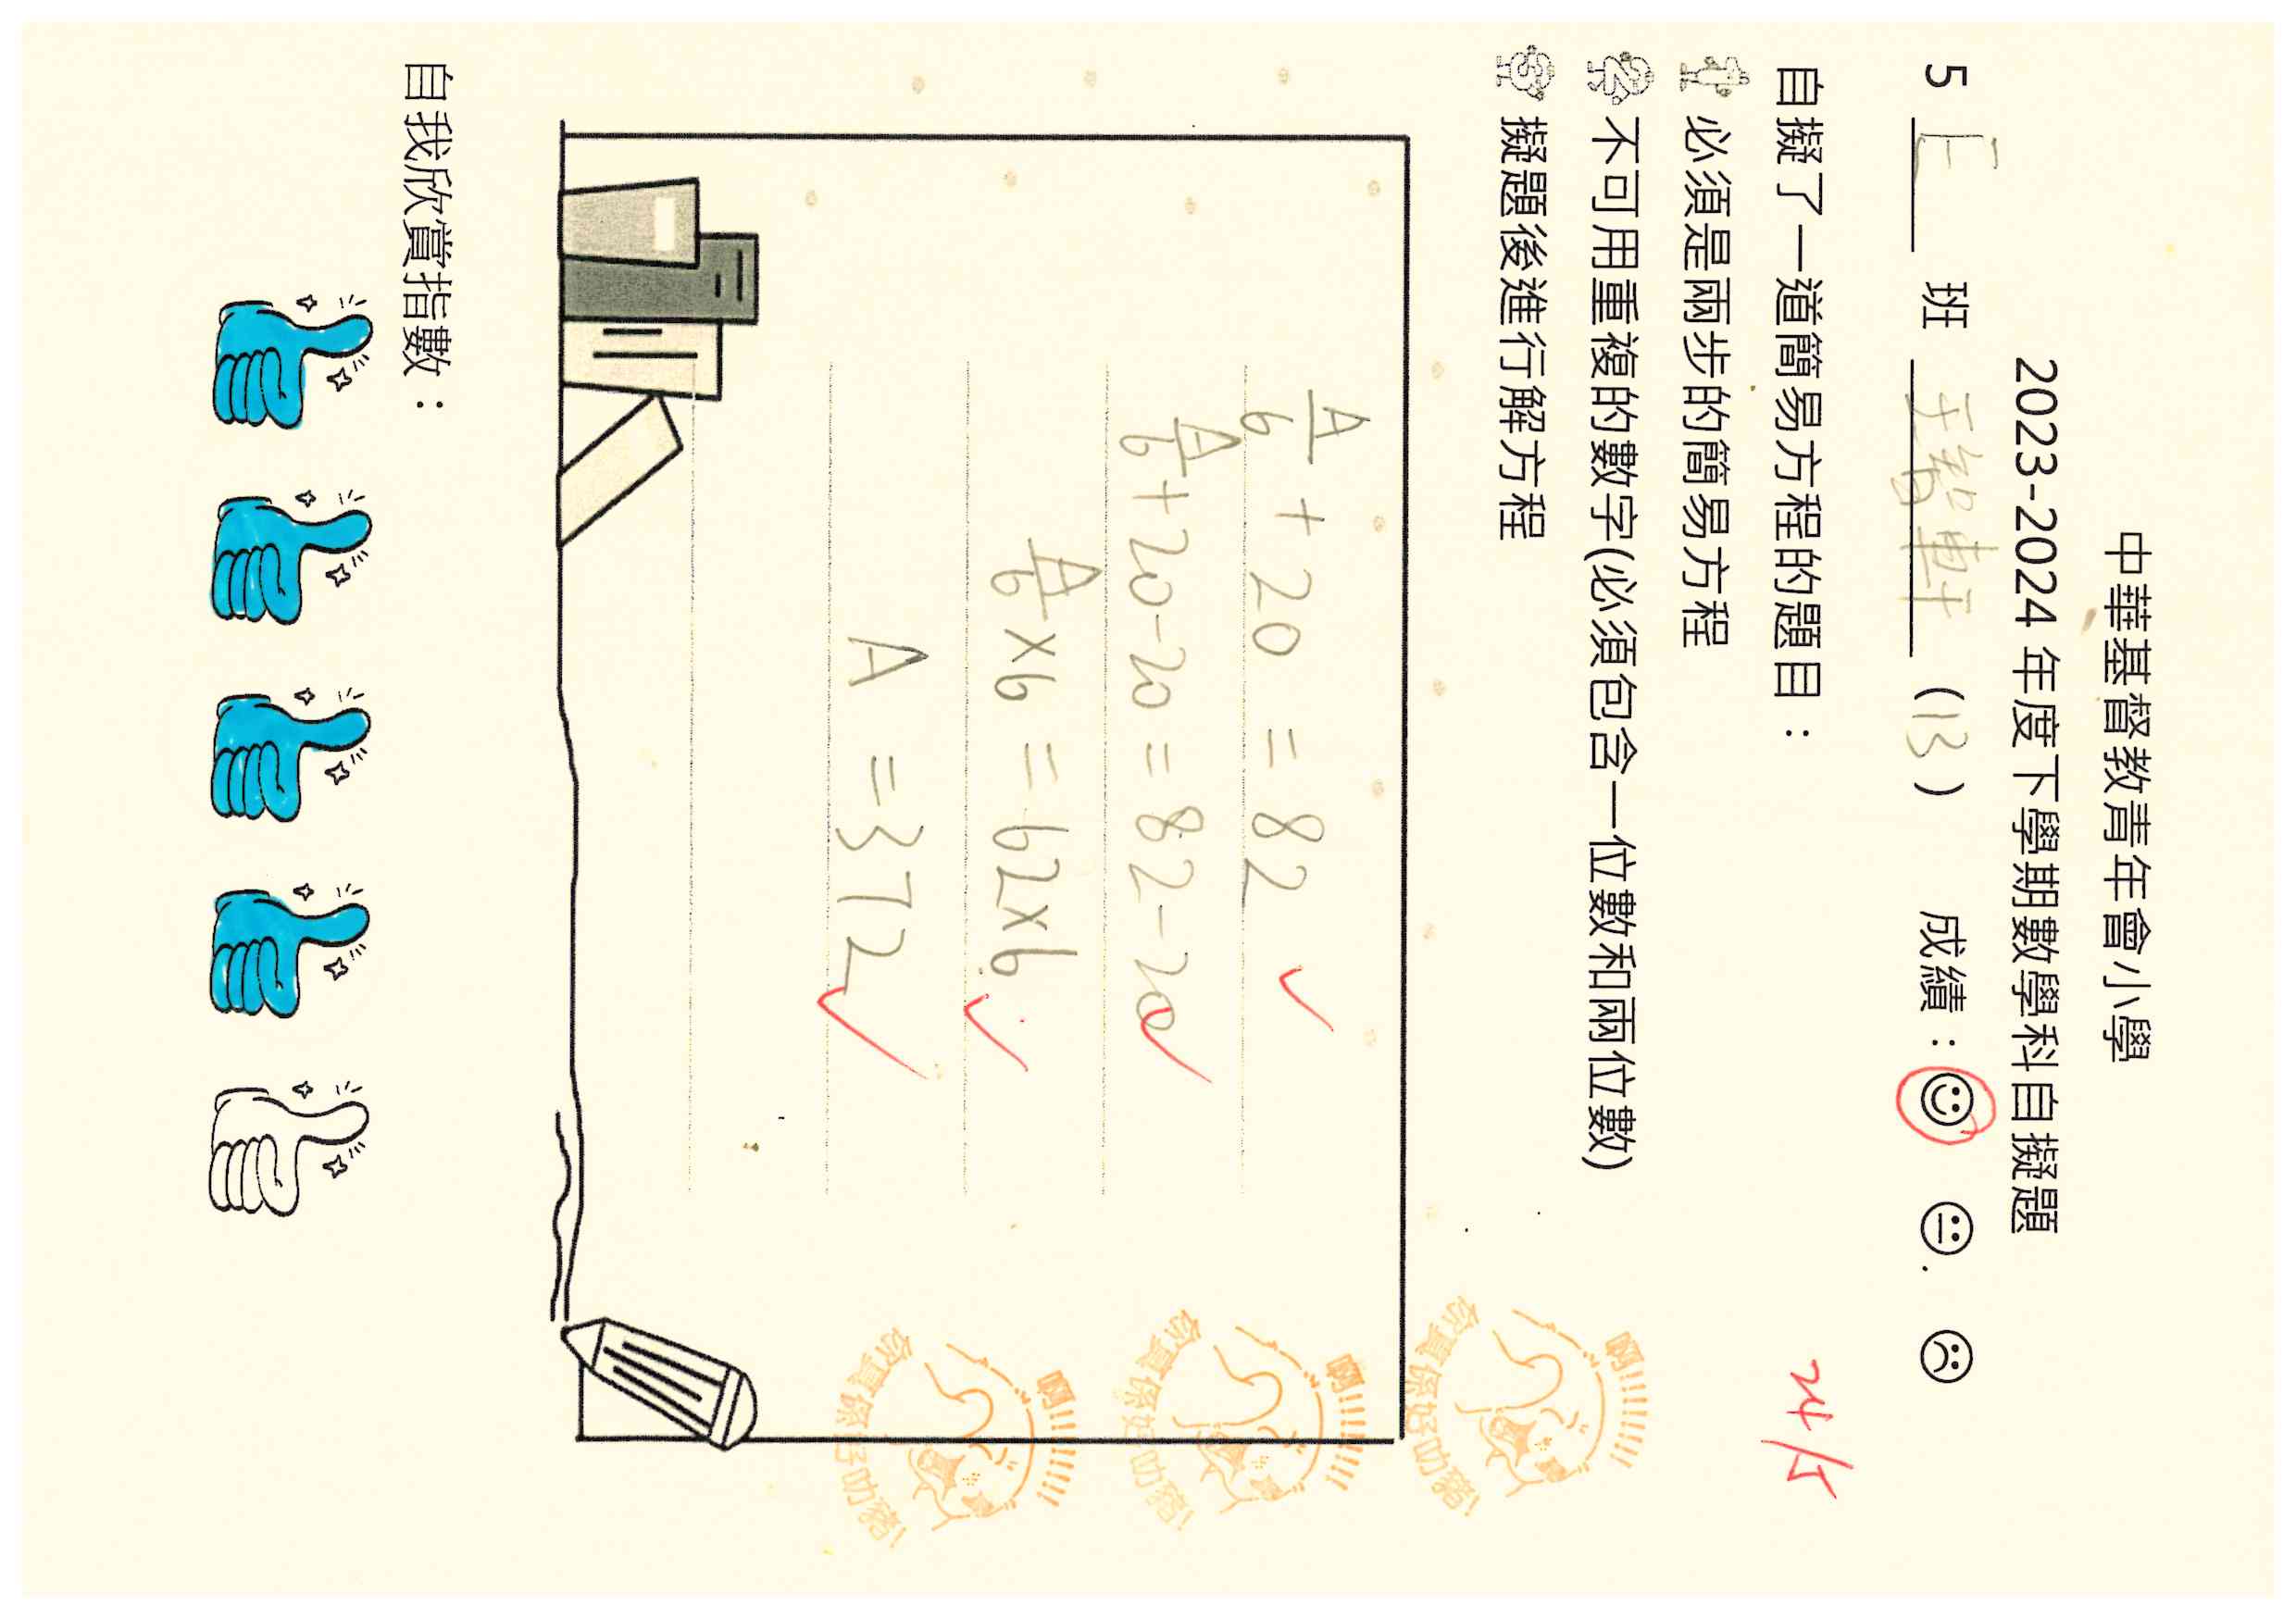 中華基督教青年會小學
2023-2024 年度下學期數學科自擬題
5 E 班 王智軒 (13) 成績：
24/5
自擬了一道簡易方程的題目：
1 必須是兩步的簡易方程
2 不可用重複的數字(必須包含一位數和兩位數)
3 擬題後進行解方程
A/6 + 20 = 82
A/6 + 20 - 20 = 82 - 20
A/6 × 6 = 62 × 6
A = 372
啊!!!!!!!
你真係好叻豬!
啊!!!!!!!
你真係好叻豬!
啊!!!!!!!
你真係好叻豬!
自我欣賞指數：